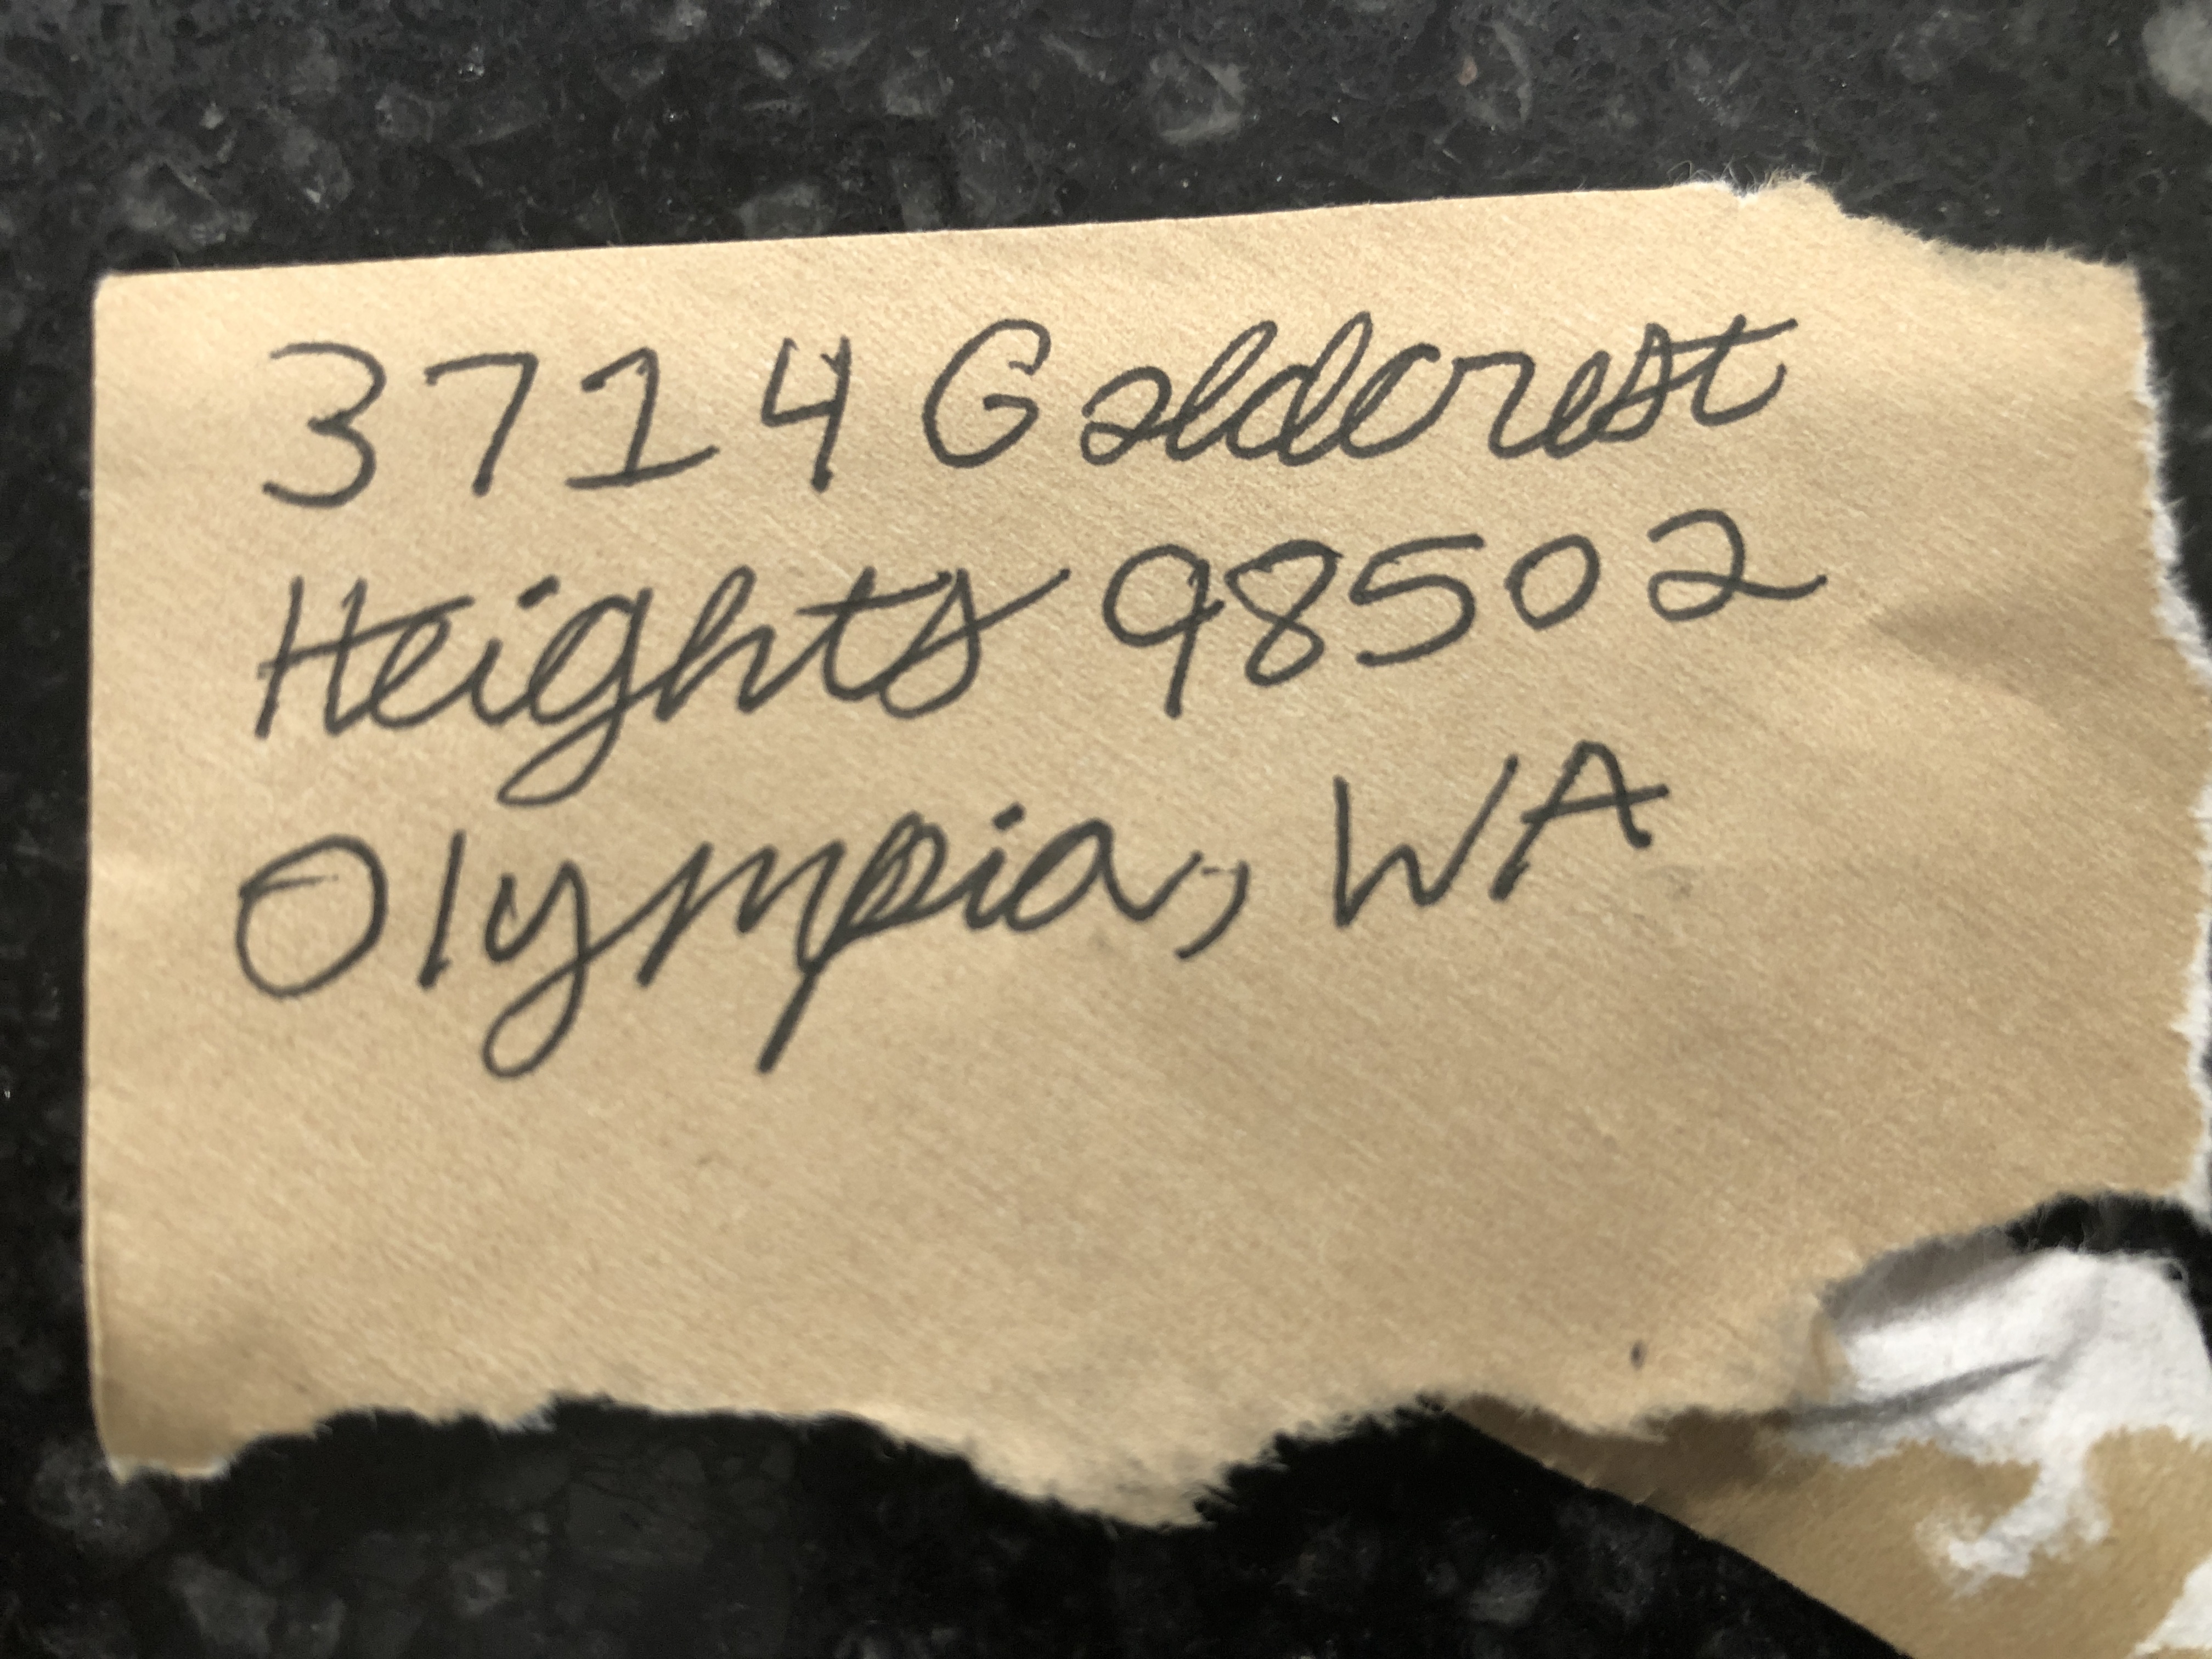 3714 Goldcrest
Heights 98502
Olympia, WA